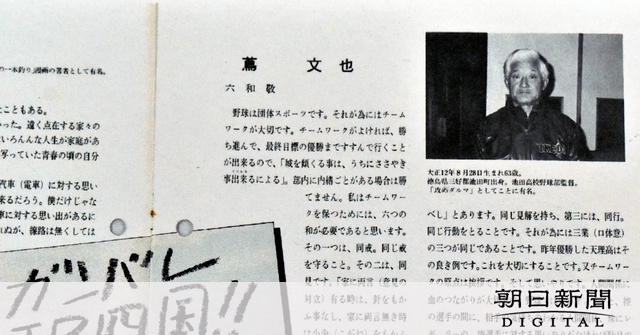 の一本釣り」漫画の著者として有名。
たこともある。
いった。遠く点在する家々の
いろんな人生が家庭があ
写っていた青春の頃の自分
汽車(電車)に対する思い
来るだろう。僕だけじゃな
車に対する思い出があるに
れぬが、線路は無くしては
ガンバレ
四国!!
蔦 文也
六和敬
野球は団体スポーツです。それが為にはチーム
ワークが大切です。チームワークがよければ、勝
ち進んで、最終目標の優勝まですすんで行くこと
が出来るので、「城を傾くる事は、うちにささやき
事出来るによる」。部内に内緒ごとがある場合は勝
てません。私はチームワー
クを保つためには、六つの
和が必要であると思います。
その一つは、同戒。同じ戒
を守ること。その二は、同
見です。「家に両言(意見の
対立)有る時は、針をもか
ふ事なし、家に両言無き時
大正12年8月28日生まれ63歳。
徳島県三好郡池田町出身。池田高校野球部監督。
「攻めダルマ」としてことに有名。
べし」とあります。同じ見解を持ち、第三には、同行。
同じ行動をとることです。それが為には三業(口体意)
の三つが同じであることです。昨年優勝した天理高はそ
の良き例です。これを大切にすることです。又チームワー
朝日新聞
DIGITAL